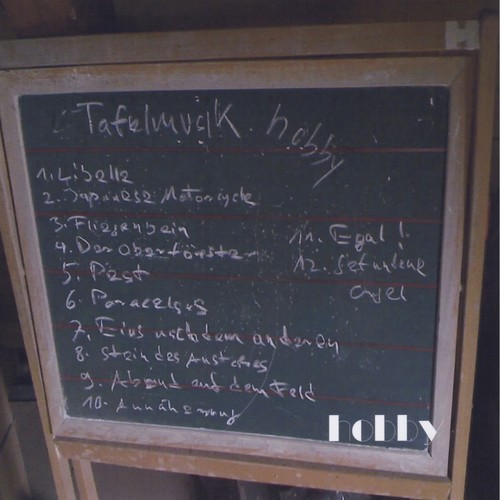 Tafelmusik hobby
1. Libelle
2. Japanese Motorcycle
3. Fliegenbein
4. Der Oberförster
5. Pest
6. Paracelsus
7. Eins nach dem anderen
8. Stein des Anstoßes
9. Abend auf dem Feld
10. Annäherung
11. Egal!
12. Gefundene
hobby